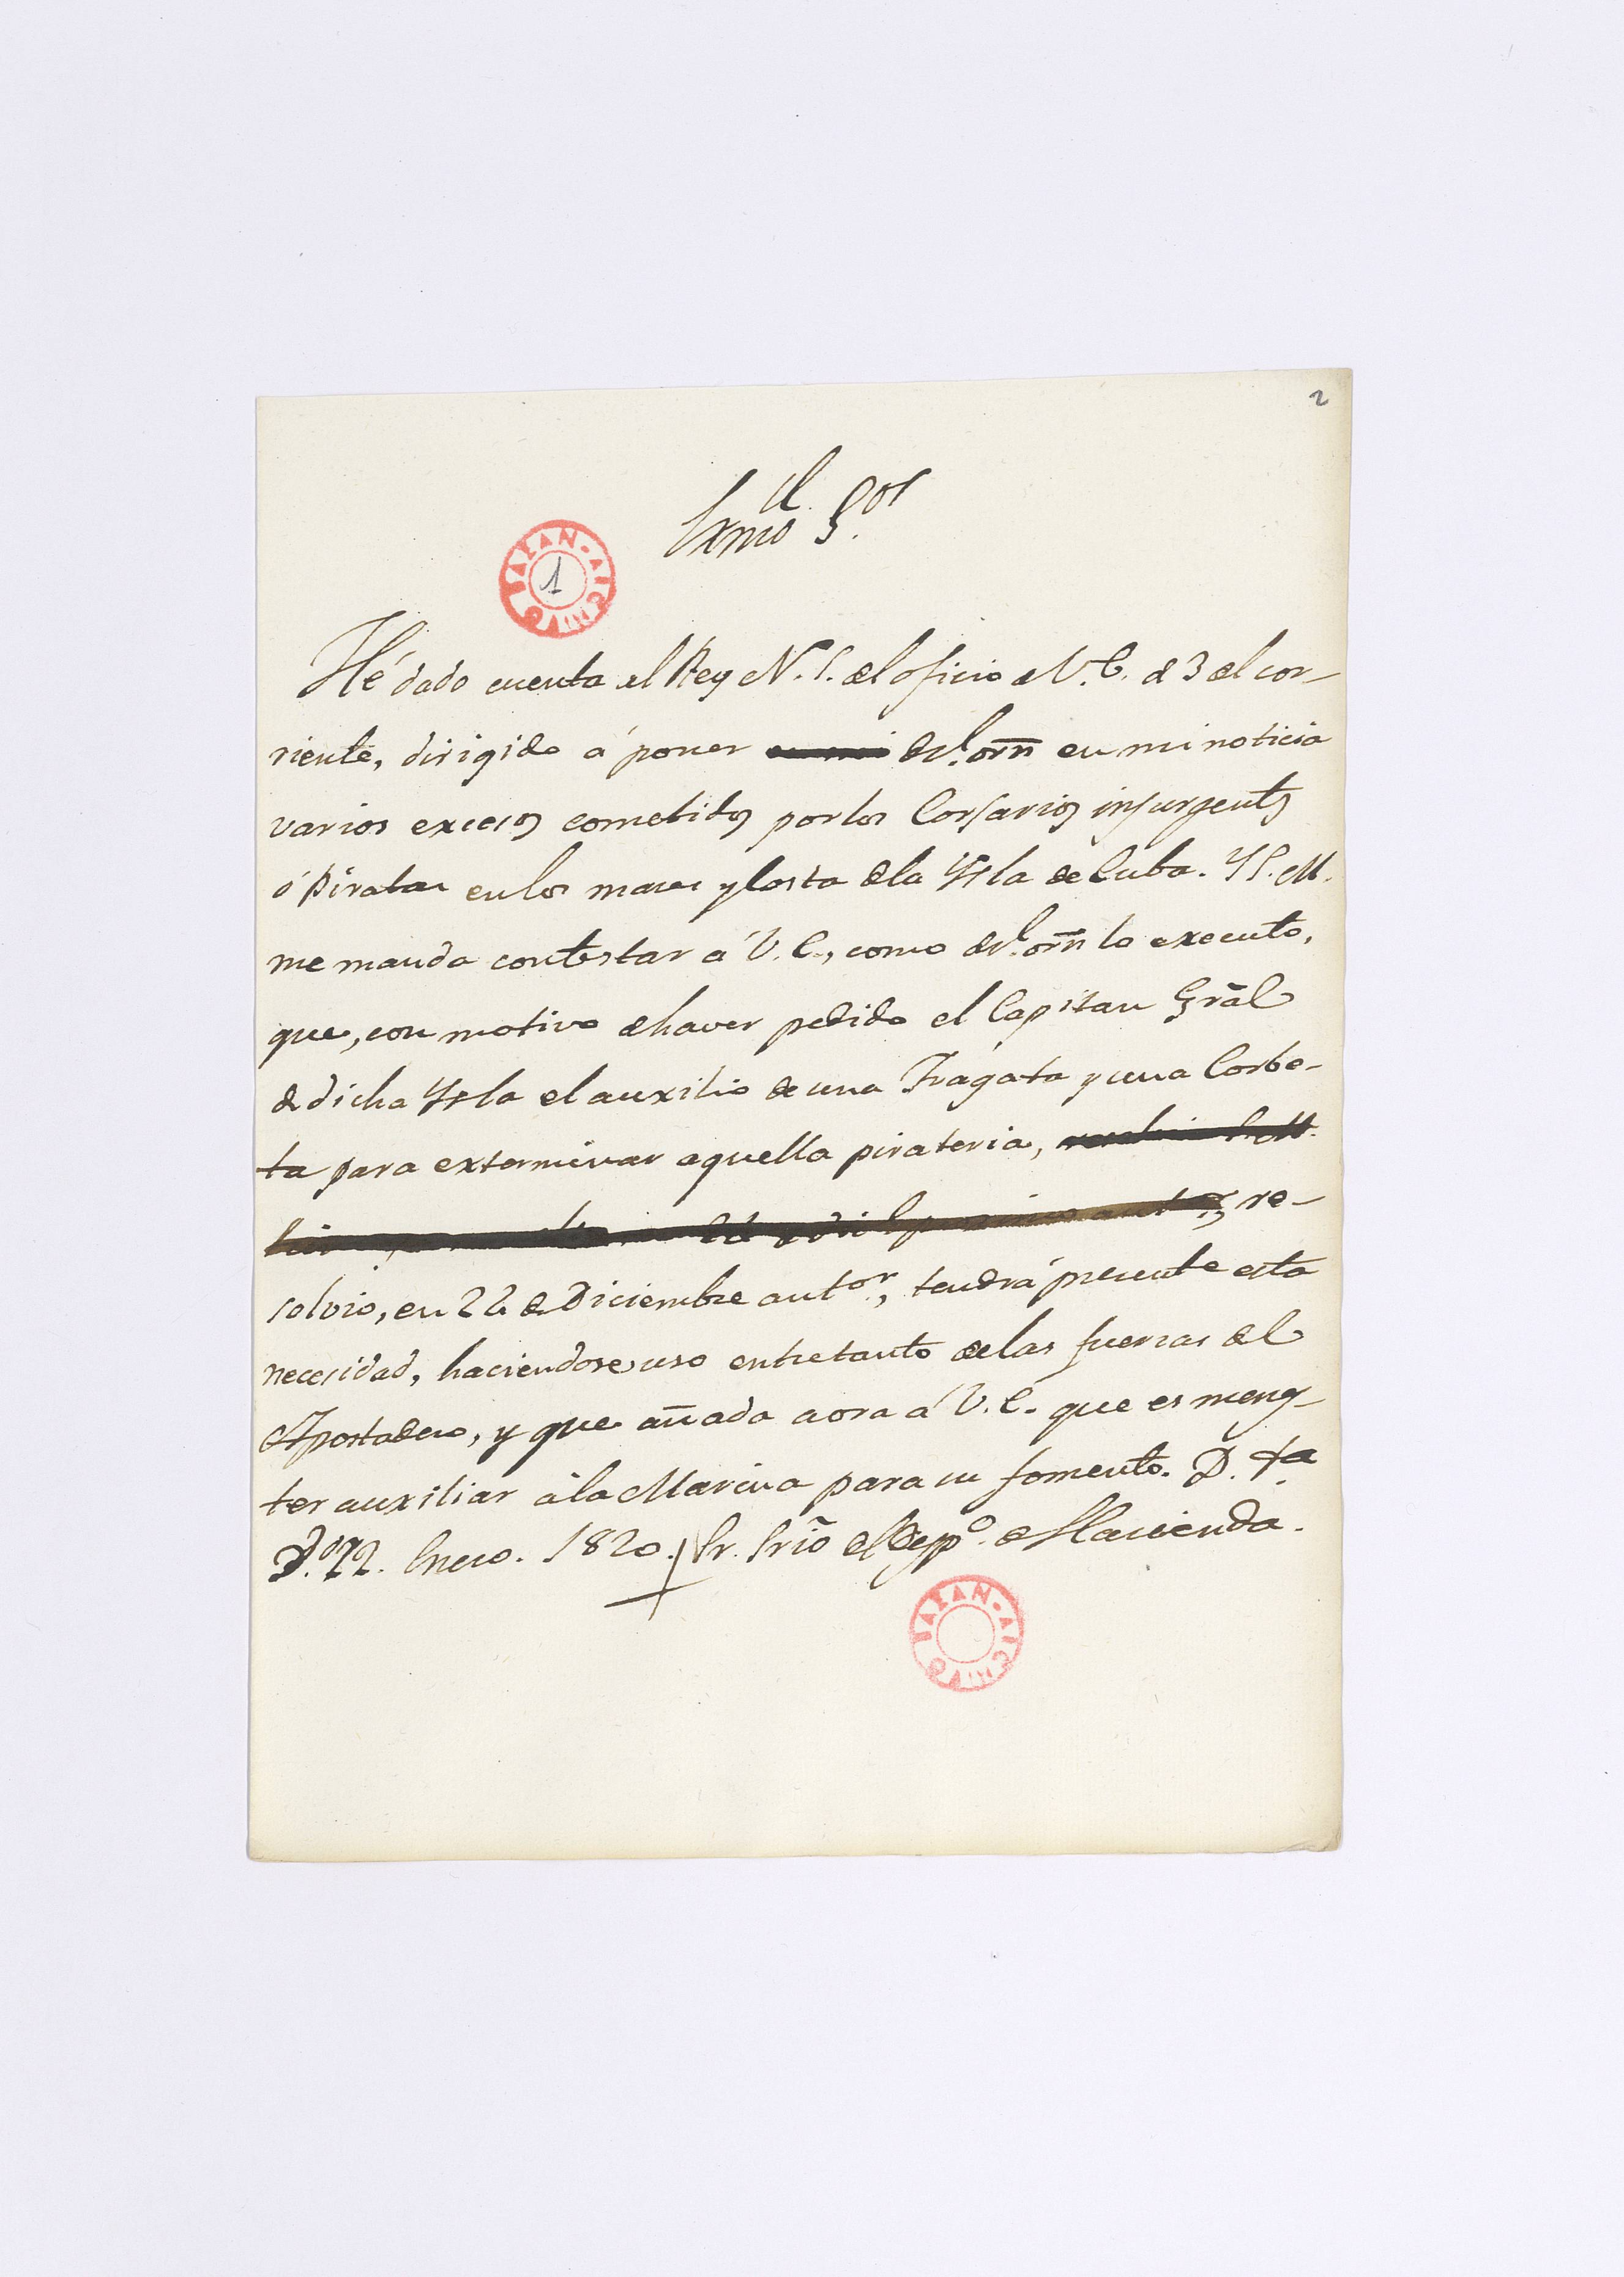 2
el
Exmo Sor
1
Hé dado cuenta al Rey N. S. del oficio de V. E. de 3 del cor-
riente, dirigido á poner en mi de Rl. orn en mi noticia
varios excesos cometidos por los Corsarios insurgentes
ó piratas en los mares y Costa de la Ysla de Cuba. Y S. M.
me manda contestar á V. E., como de Rl. orn lo executo,
que, con motivo de haver pedido el Capitan Grãl
de dicha Ysla el auxilio de una Fragata y una Corbe-
ta para exterminar aquella pirateria,
re-
solvio, en 22 de Diciembre antor, tendrá presente esta
necesidad, haciendose uso entretanto de las fuerzas del
Apostadero, y que añada aora á V. E. que es menes-
ter auxiliar á la Marina para su fomento. D. ta
Dº 22. Enero. 1820. Sr. Srio del Deppº de Hacienda.